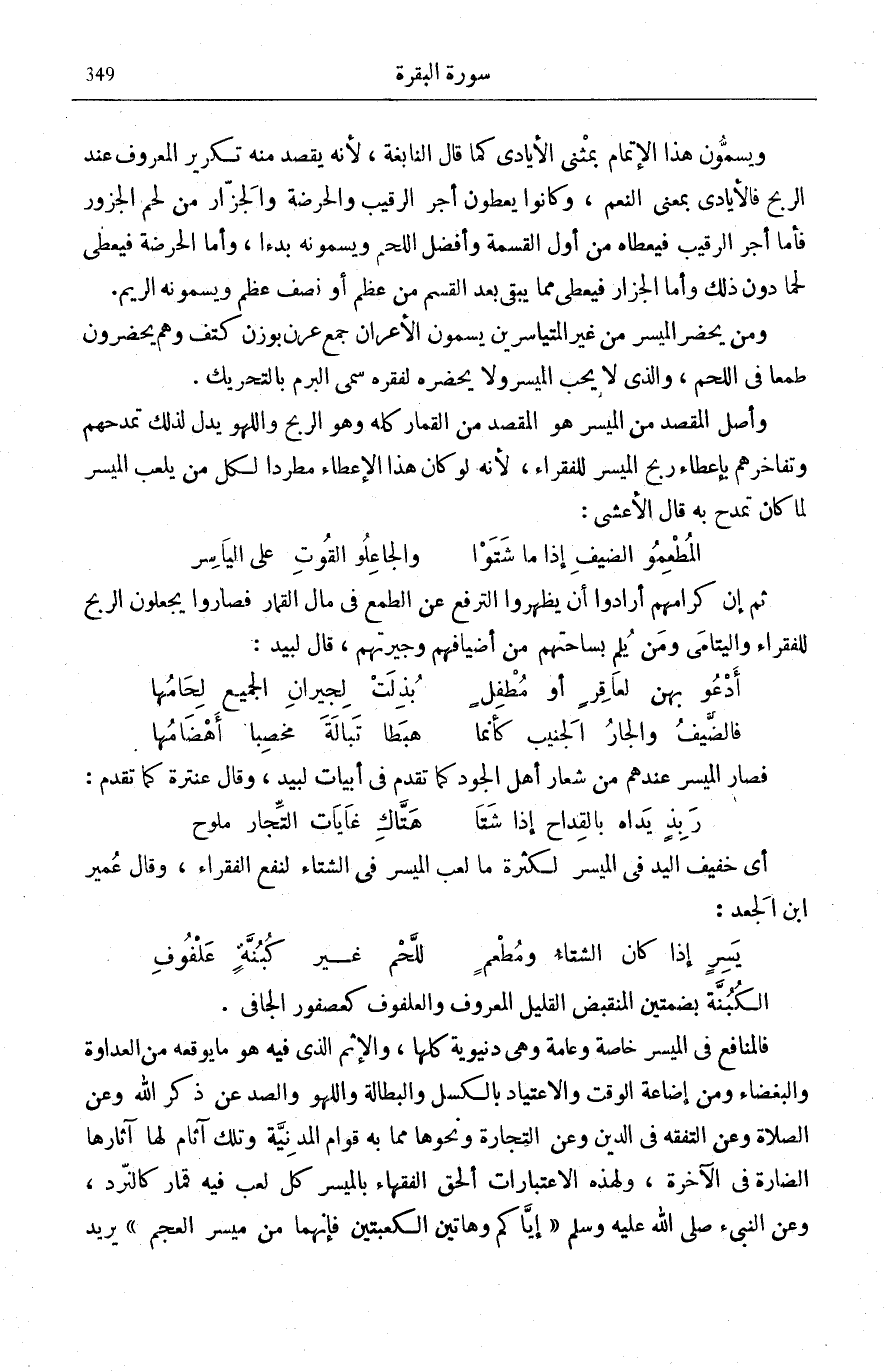 سورة البقرة 349
ويسمُّون هذا الإتمام بمثْنى الأيادى كما قال النابغة ، لأنه يقصد منه تكرير المعروف عند
الربح فالأيادى بمعنى النعم ، وكانوا يعطون أجر الرقيب والحرضة والجزّار من لحم الجزور
فأما أجر الرقيب فيعطاه من أول القسمة وأفضل اللحم ويسمونه بدءا ، وأما الحرضة فيعطى
لحما دون ذلك وأما الجزار فيعطى مما يبقى بعد القسم من عظم أو نصف عظم ويسمونه الريم.
ومن يحضر الميسر من غير المتياسرين يسمون الأعران جمع عرن بوزن كتف وهم يحضرون
طمعا فى اللحم ، والذى لا يحب الميسر ولا يحضره لفقره سمى البرم بالتحريك .
وأصل المقصد من الميسر هو المقصد من القمار كله وهو الربح واللهو يدل لذلك تمدحهم
وتفاخرهم بإعطاء ربح الميسر للفقراء ، لأنه لو كان هذا الإعطاء مطردا لكل من يلعب الميسر
لما كان تمدح به قال الأعشى :
المُطْعِمُو الضيفِ إذا ما شَتَوْا والجاعِلُو القُوتِ على اليَاسِر
ثم إن كرامهم أرادوا أن يظهروا الترفع عن الطمع فى مال القمار فصاروا يجعلون الربح
للفقراء واليتامَى ومَن يُلم بساحتهم من أضيافهم وجيرتهم ، قال لبيد :
أَدْعُو بهن لعَاقِرٍ أو مُطْفِلٍ بُذِلَتْ لِجيرانِ الجميع لِحَامُها
فالضَّيفُ والجارُ الجنيب كأنما هبَطا تَبالَةَ مخصبا أَهْضَامُها
فصار الميسر عندهم من شعار أهل الجود كما تقدم فى أبيات لبيد ، وقال عنترة كما تقدم :
رَبِذٍ يَداه بالقِداح إذا شَتَا هَتَّاكِ غَايَات التِّجار ملوح
أى خفيف اليد فى الميسر لكثرة ما لعب الميسر فى الشتاء لنفع الفقراء ، وقال عُمير
ابن الجعد :
يَسِرٍ إذا كان الشتاء ومُطْعمٍ للَّحْم غير كُبُنَّةٍ عَلْفُوفِ
الكُبُنَّة بضمتين المنقبض القليل المعروف والعلفوف كعصفور الجافى .
فالمنافع فى الميسر خاصة وعامة وهى دنيوية كلها ، والإثم الذى فيه هو مايوقعه من العداوة
والبغضاء ومن إضاعة الوقت والاعتياد بالكسل والبطالة واللهو والصد عن ذكر الله وعن
الصلاة وعن التفقه فى الدين وعن التجارة ونحوها مما به قوام المدنيَّة وتلك آثام لها آثارها
الضارة فى الآخرة ، ولهذه الاعتبارات ألحق الفقهاء بالميسر كل لعب فيه قمار كالنّرد ،
وعن النبىء صلى الله عليه وسلم « إيَّاكم وهاتين الكعبتين فإنهما من ميسر العجم » يريد